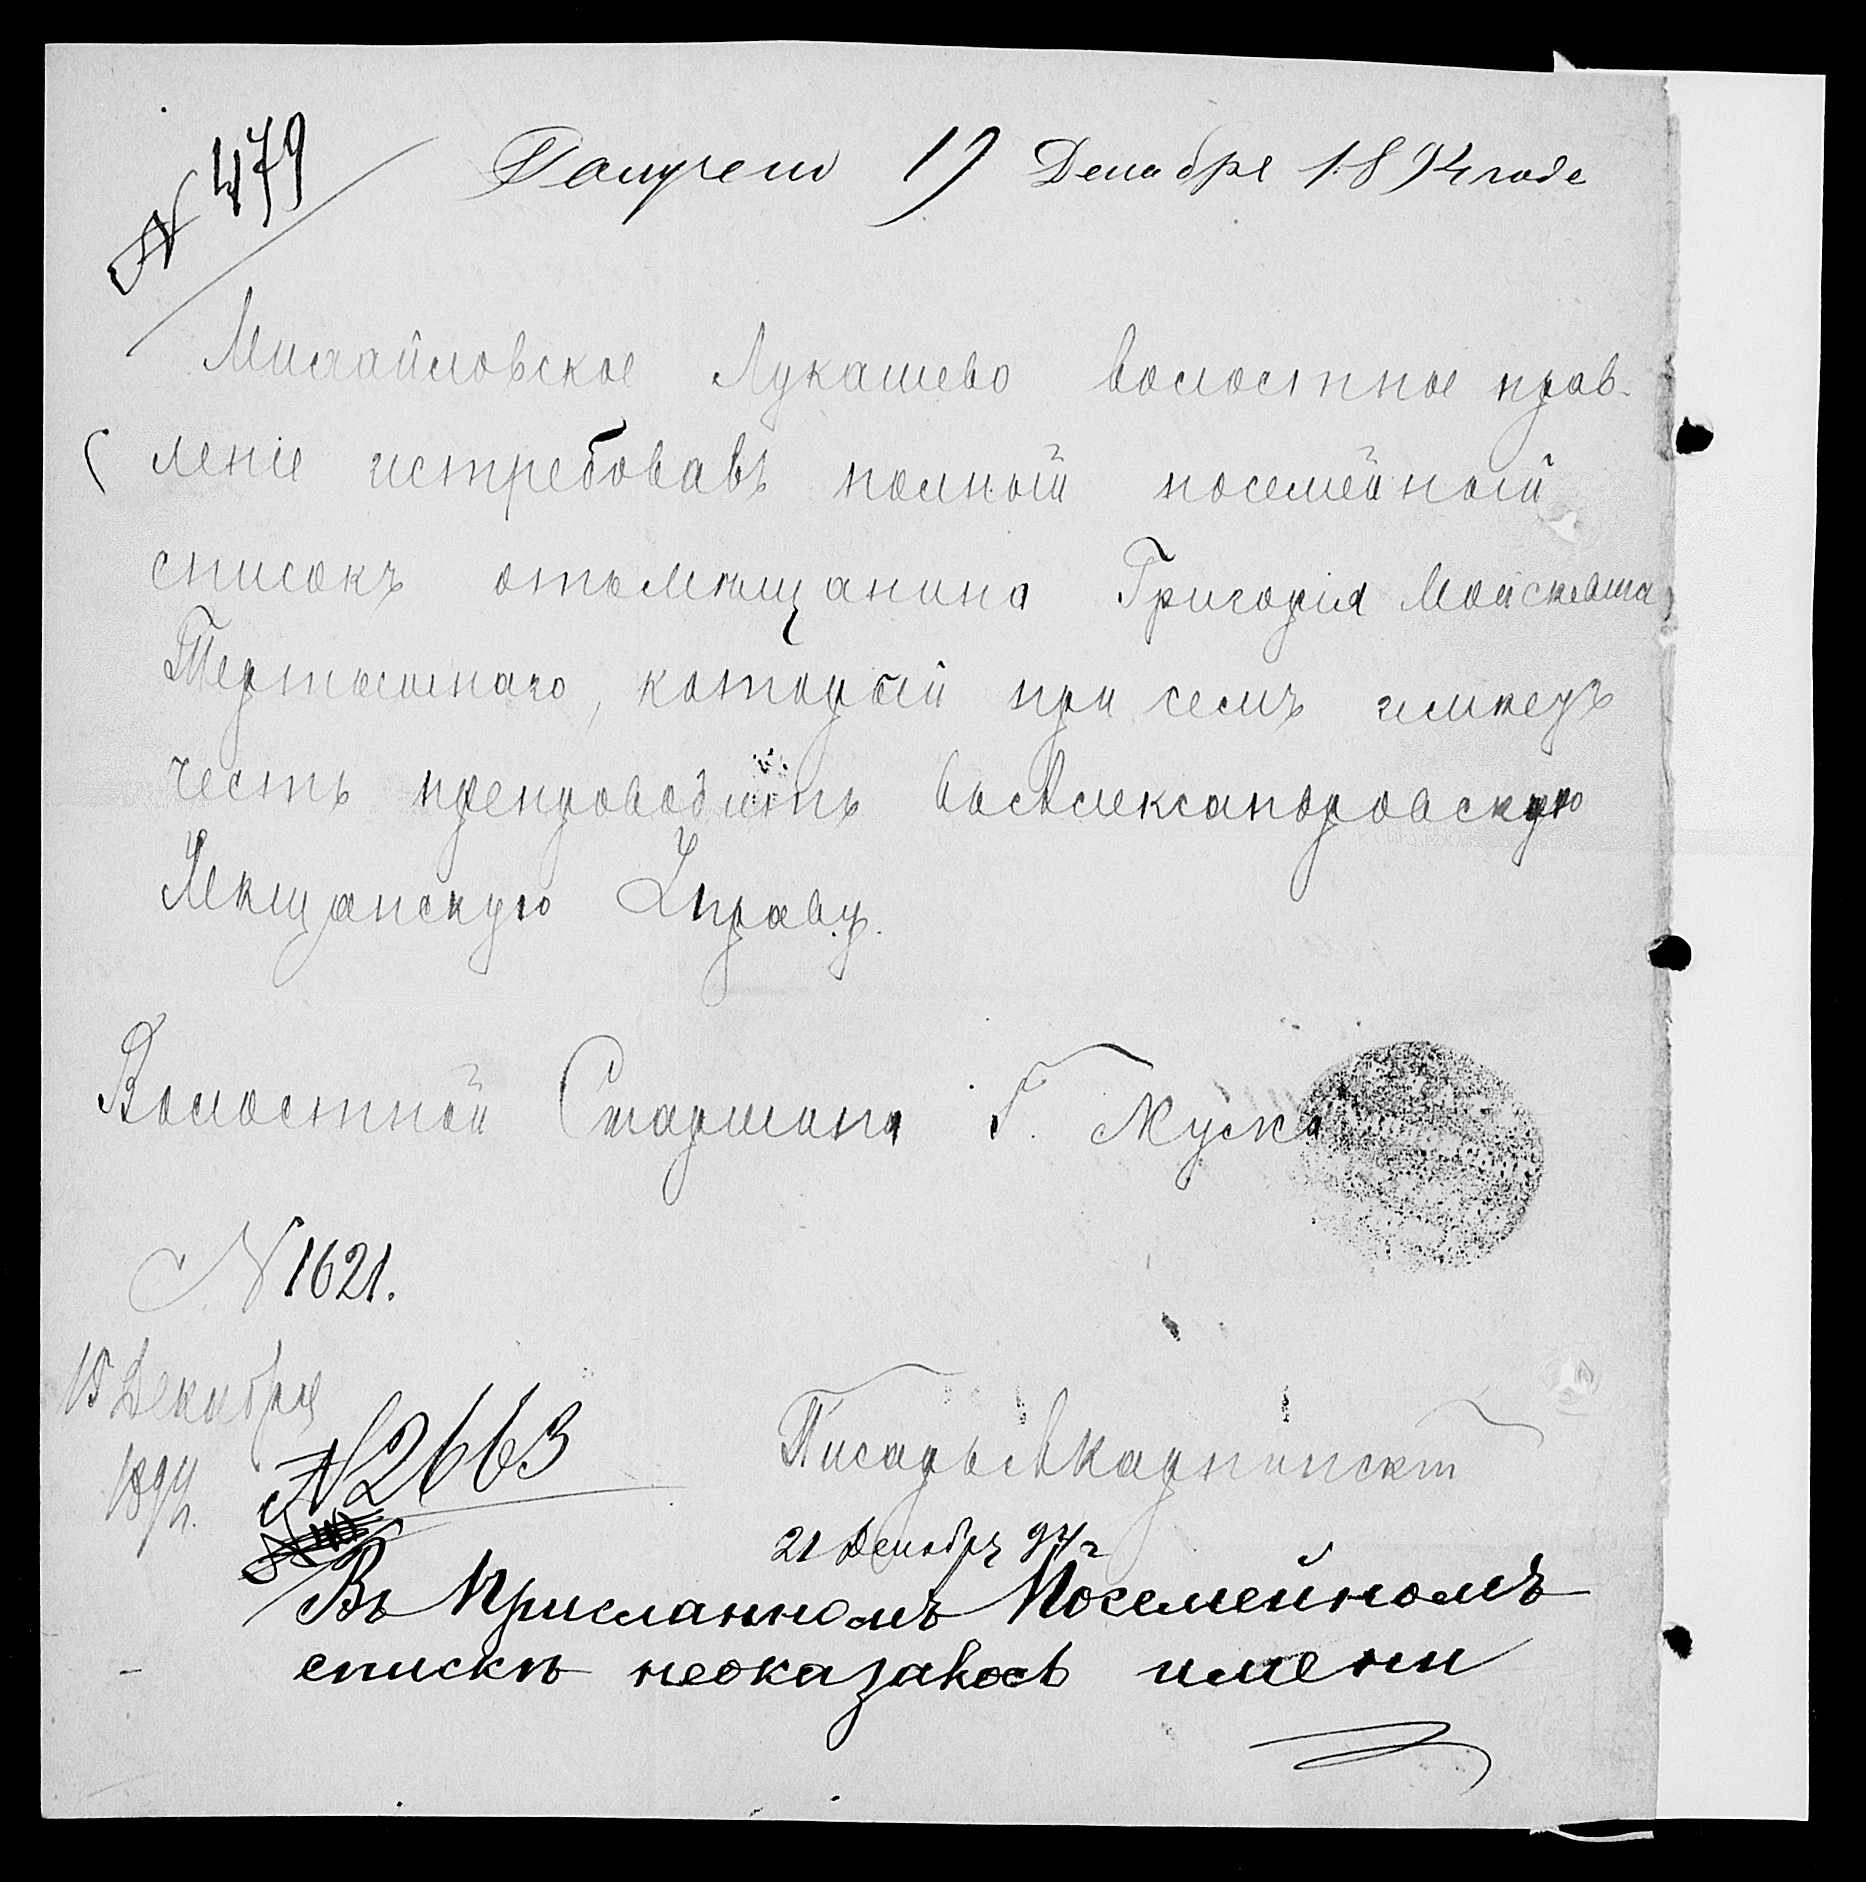 № 479
Получено 19 Декабря 1894 года
Михайловское Лукашево волостное прав-
леніе истребовавъ полный посемейный
списокъ отъ мѣщанина Григорія
Тертышнаго, который при семъ имѣетъ
честь препроводить въ Александровскую
Мѣщанскую Управу.
Волостной Старшина Г. Муска
№ 1621.
15 Декабря
1894 г.
№ 2663
Писарь
21 Декабря 94 г
Въ присланномъ Посемейномъ
спискѣ неоказалось имени